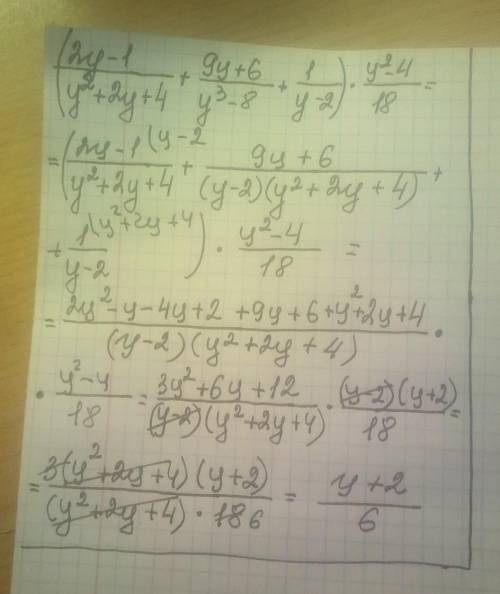 ((2y-1)/(y²+2y+4) + (9y+6)/(y³-8) + 1/(y-2)) · (y²-4)/18 =
= ((2y-1 (y-2)/(y²+2y+4) + (9y+6)/((y-2)(y²+2y+4)) +
+ 1 (y²+2y+4)/(y-2)) · (y²-4)/18 =
= (2y²-y-4y+2+9y+6+y²+2y+4)/((y-2)(y²+2y+4)) ·
· (y²-4)/18 = (3y²+6y+12)/((y-2)(y²+2y+4)) · ((y-2)(y+2))/18 =
= (3(y²+2y+4)(y+2))/((y²+2y+4) · 18 6) = (y+2)/6